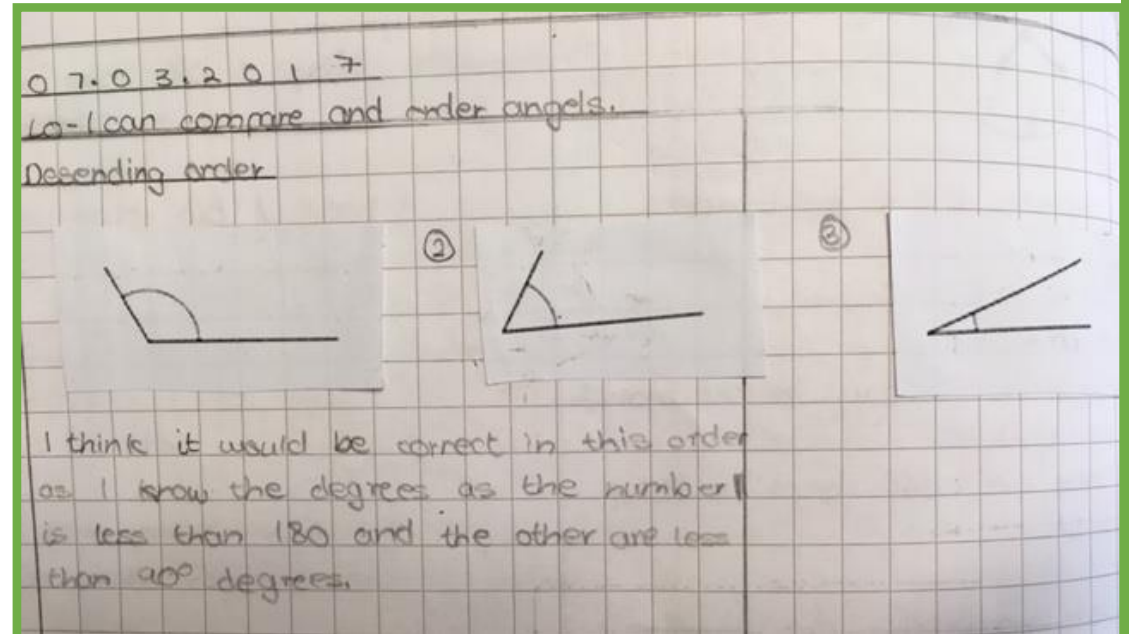 07.03.2017
LO-I can compare and order angels.
Decending order
② ③
I think it would be correct in this order
as I know the degrees as the number 1
is less than 180 and the other are less
than 90° degrees.